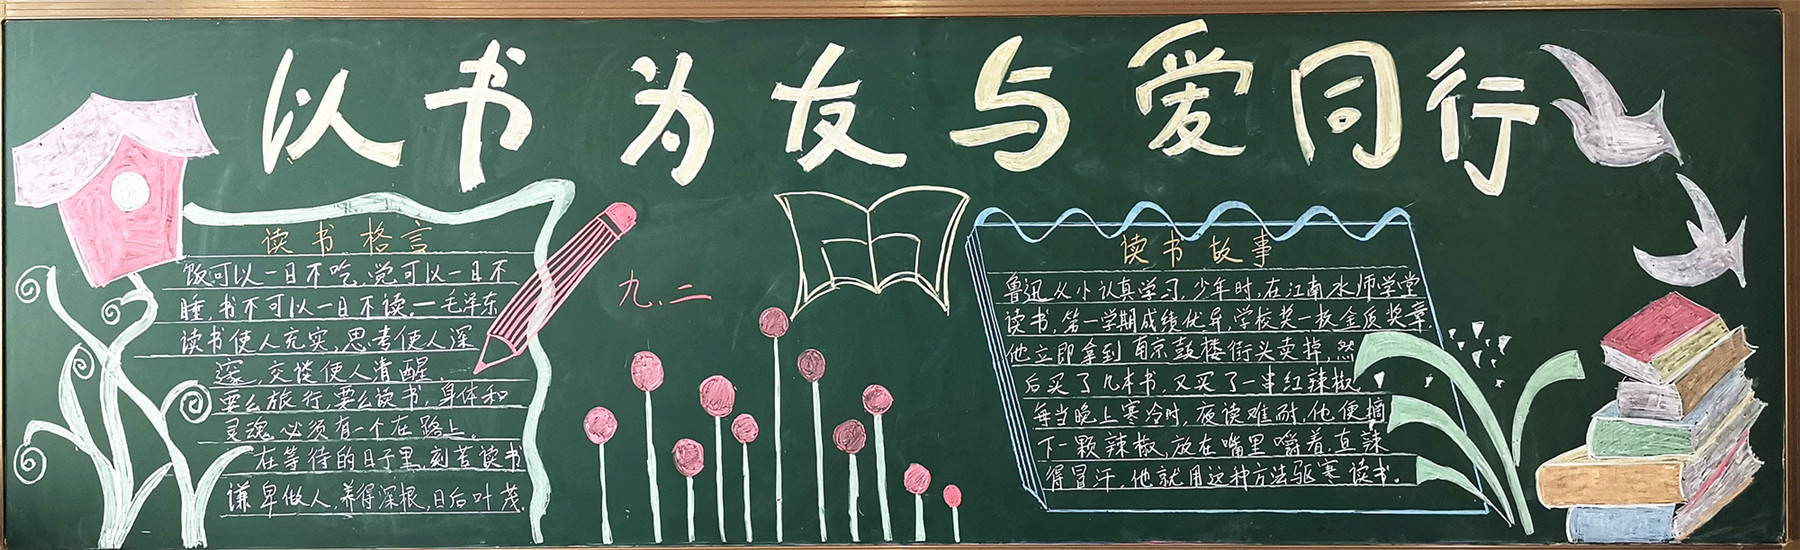 以书为友与爱同行
读书格言
饭可以一日不吃，觉可以一日不
睡，书不可以一日不读。—毛泽东
读书使人充实，思考使人深
邃，交谈使人清醒．
要么旅行，要么读书，身体和
灵魂必须有一个在路上。
在等待的日子里，刻苦读书
谦卑做人，养得深根，日后叶茂．
九．二
读书故事
鲁迅从小认真学习．少年时，在江南水师学堂
读书，第一学期成绩优异，学校奖一枚金质奖章．
他立即拿到南京鼓楼街头卖掉，然
后买了几本书，又买了一串红辣椒．
每当晚上寒冷时，夜读难耐，他便摘
下一颗辣椒，放在嘴里嚼着，直辣
得冒汗，他就用这种方法驱寒读书．